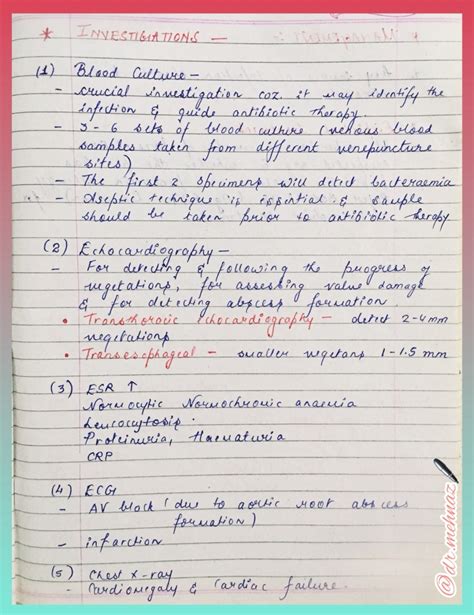 * INVESTIGIATIONS —
(1) Blood Culture —
- crucial investigation coz it may identify the
infection & guide antibiotic therapy.
- 3-6 sets of blood culture (venous blood
samples taken from different venepuncture
sites)
- The first 2 specimens will detect bacteraemia
- Aseptic technique is essential & sample
should be taken prior to antibiotic therapy
(2) Echocardiography —
- For detecting & following the progress of
vegetations, for assessing valve damage
& for detecting abscess formation.
• Transthoracic echocardiography - detect 2-4mm
vegetations
• Transesophageal - smaller vegetans 1-1.5 mm
(3) ESR ↑
Normocytic Normochromic anaemia
Leucocytosis
Proteinuria, Haematuria
CRP
(4) ECG
- AV block (due to aortic root abscess
formation)
- infarction
(5) Chest x-ray
- Cardiomegaly & cardiac failure.
@dr.mehnaz